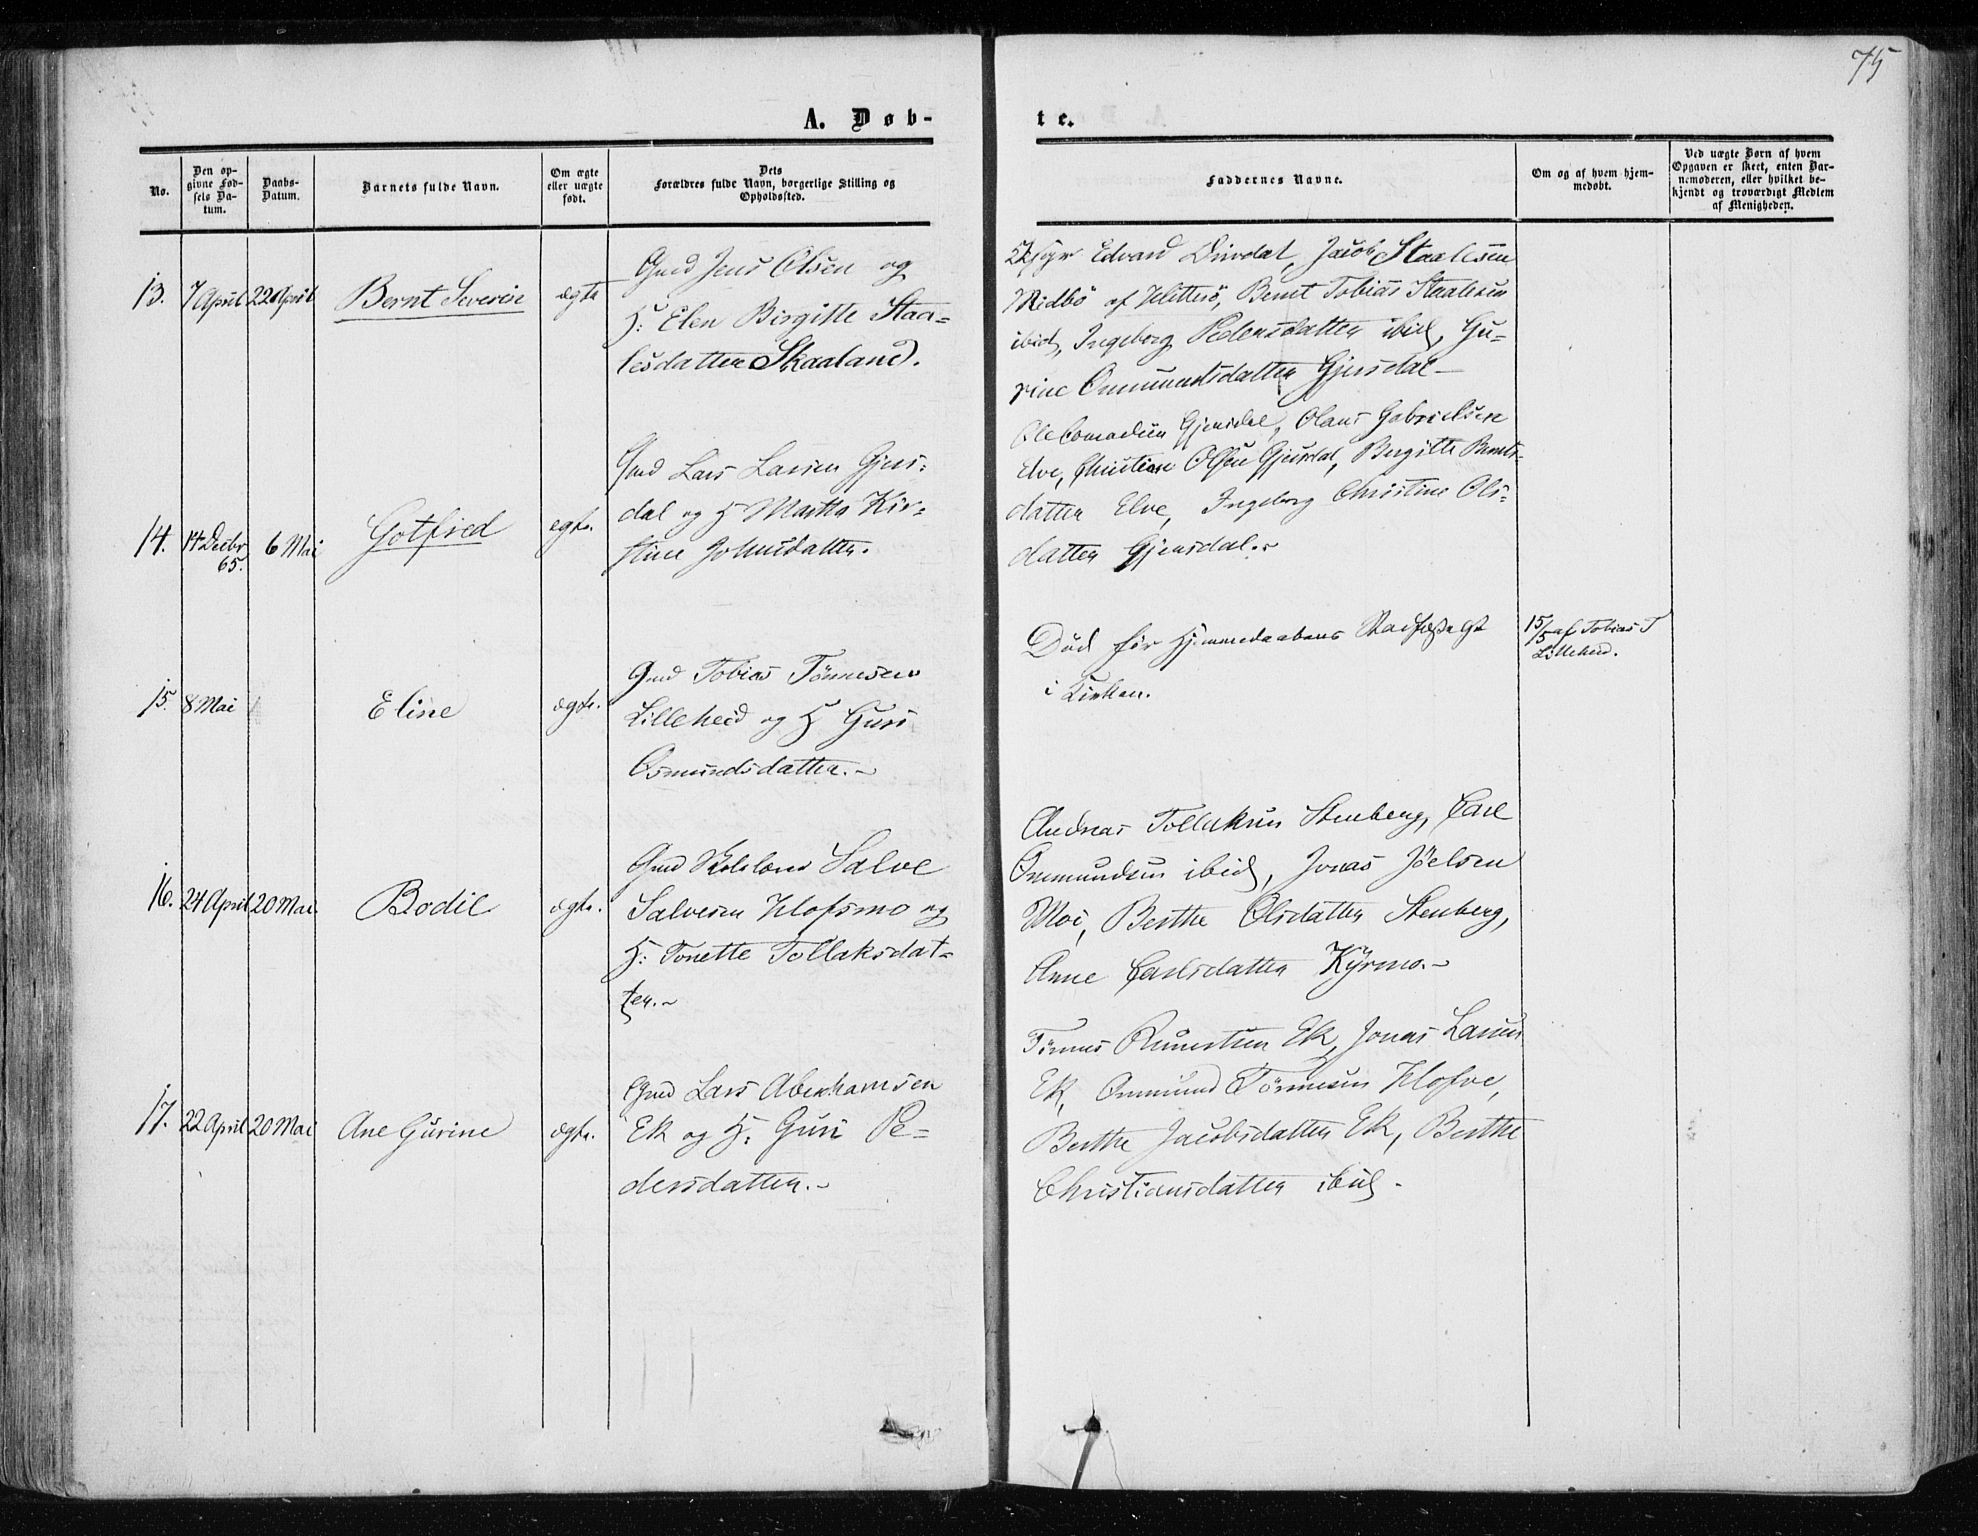 75
A. Døb-
te.
No.
Den op-
givne Fød-
sels Da-
tum.
Daabs-
Datum.
Barnets fulde Navn.
Om ægte
eller uægte
født.
Dets
Forældres fulde Navn, borgerlige Stilling og
Opholdssted.
Faddernes Navne.
Om og af hvem hjem-
medøbt.
Ved uægte Børn af hvem
Opgaven er skeet, enten Bar-
nemoderen, eller hvilket be-
kjendt og troværdigt Medlem
af Menigheden.
13.
7 April
22 April
Bernt Severin
ægte
Gmd Jens Olsen og
H: Elen Birgitte Staa-
lesdatter Skaaland.
Edvard Dirdal, Jacob Staalesen
Midbö af Hitterö, Bernt Tobias Staalesen
ibid, Ingeborg Pedersdatter ibid, Gu-
rine Ommundsdatter Gjersdal
14.
14 Decbr
65.
6 Mai
Gotfred
egte.
Gmd Lars Larsen Gjers-
dal og H Martha Kir-
stine Johnsdatter.
Ole Gjersdal, Olaus Gabrielsen
Elve, Christian Olsen Gjersdal, Birgitte Bernts-
datter Elve, Ingeborg Christine Ols-
datter Gjersdal.
15.
8 Mai
Eline
ægte.
Gmd Tobias Tönnesen
Lilleheid og H Guri
Osmundsdatter.
Död för Hjemmedaabens Stadfæstelse
i Kirken.
15/5 af Tobias T
Lilleheid.
16.
24 April
20 Mai
Bodil
ægte.
Gmd Salve
Salvesen Klofsmo og
H: Tonette Tollaksdat-
ter.
Andreas Tollaksen Stenberg, Carl
Ommundsen ibid, Jonas Jöelsen
Moi, Berthe Olsdatter Stenberg,
Anne Carlsdatter Kyrmo.
17.
22 April
20 Mai
Ane Gurine
ægte.
Gmd Lars Abrahamsen
Ek og H: Guri Pe-
dersdatter.
Tönnes Ek, Jonas Larsen
Ek, Ommund Tönnesen Klofve,
Berthe Jacobsdatter Ek, Berthe
Christiansdatter ibid.